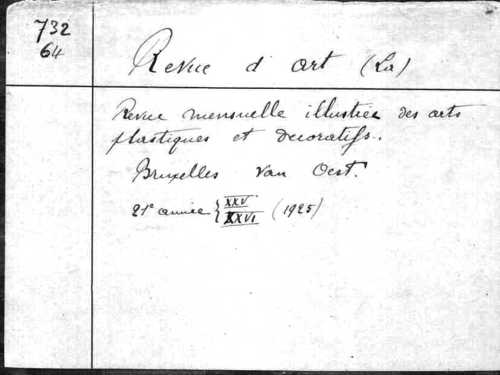 732
64
Revue d'art (La)
Revue mensuelle illustrée des arts
plastiques et decoratifs.
Bruxelles Van Oest.
21e année { XXV
XXVI (1925)